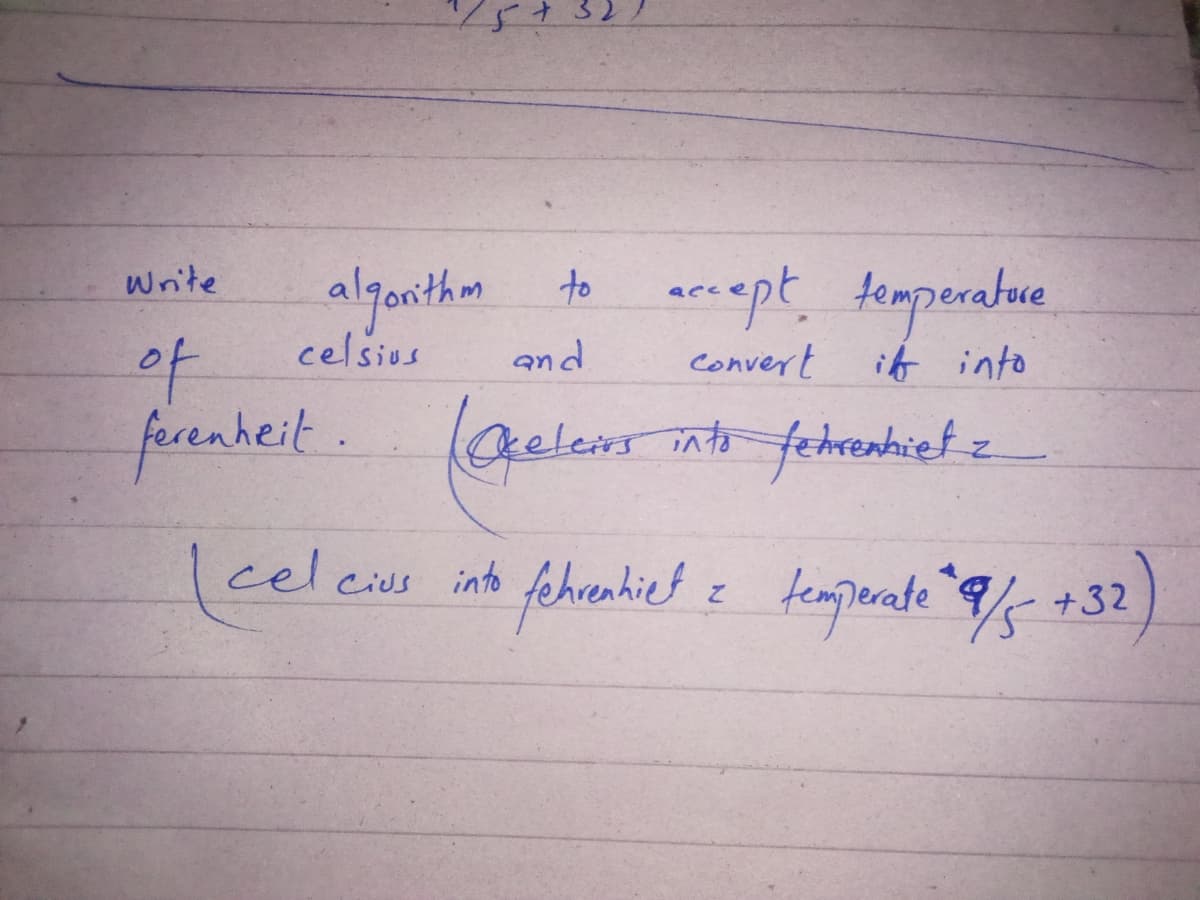 /5 + 32)
Write algorithm to accept temperature
of celsius and convert it into
ferenheit. (
(celcius into fehrenhiet = temperate * 9/5 +32)